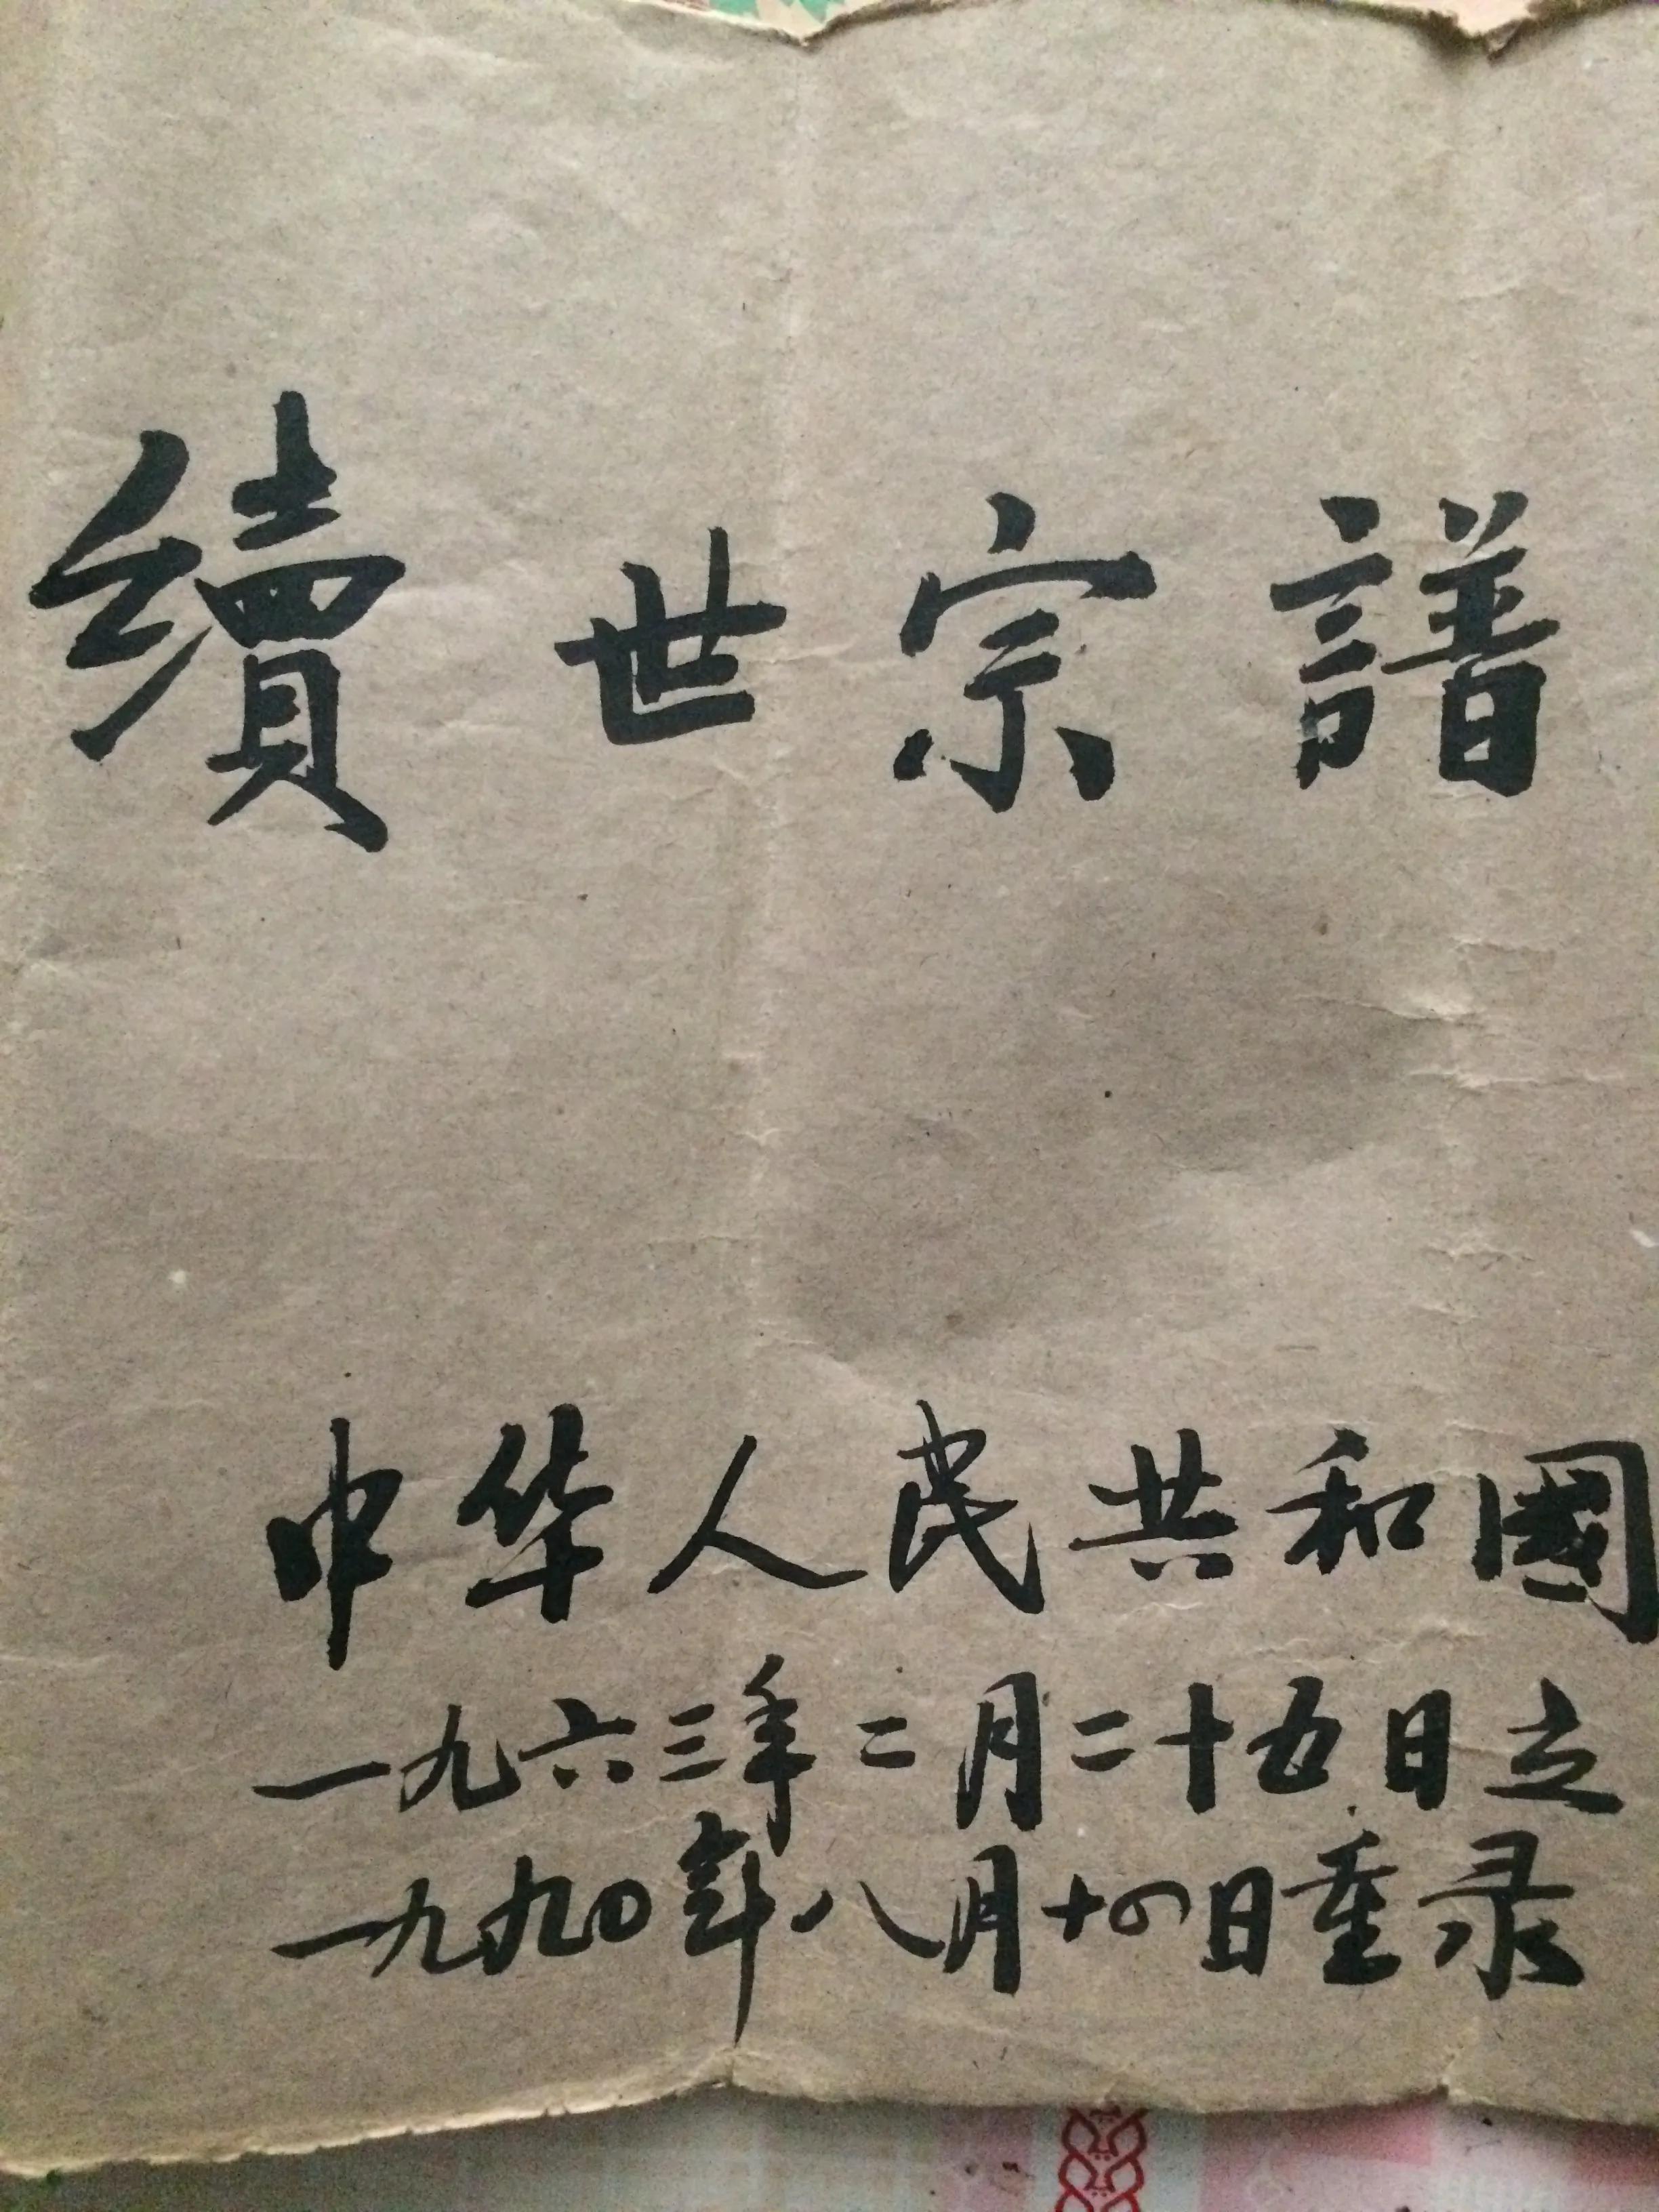 續世宗譜
中华人民共和國
一九六三年二月二十五日立
一九九〇年八月十四日重录